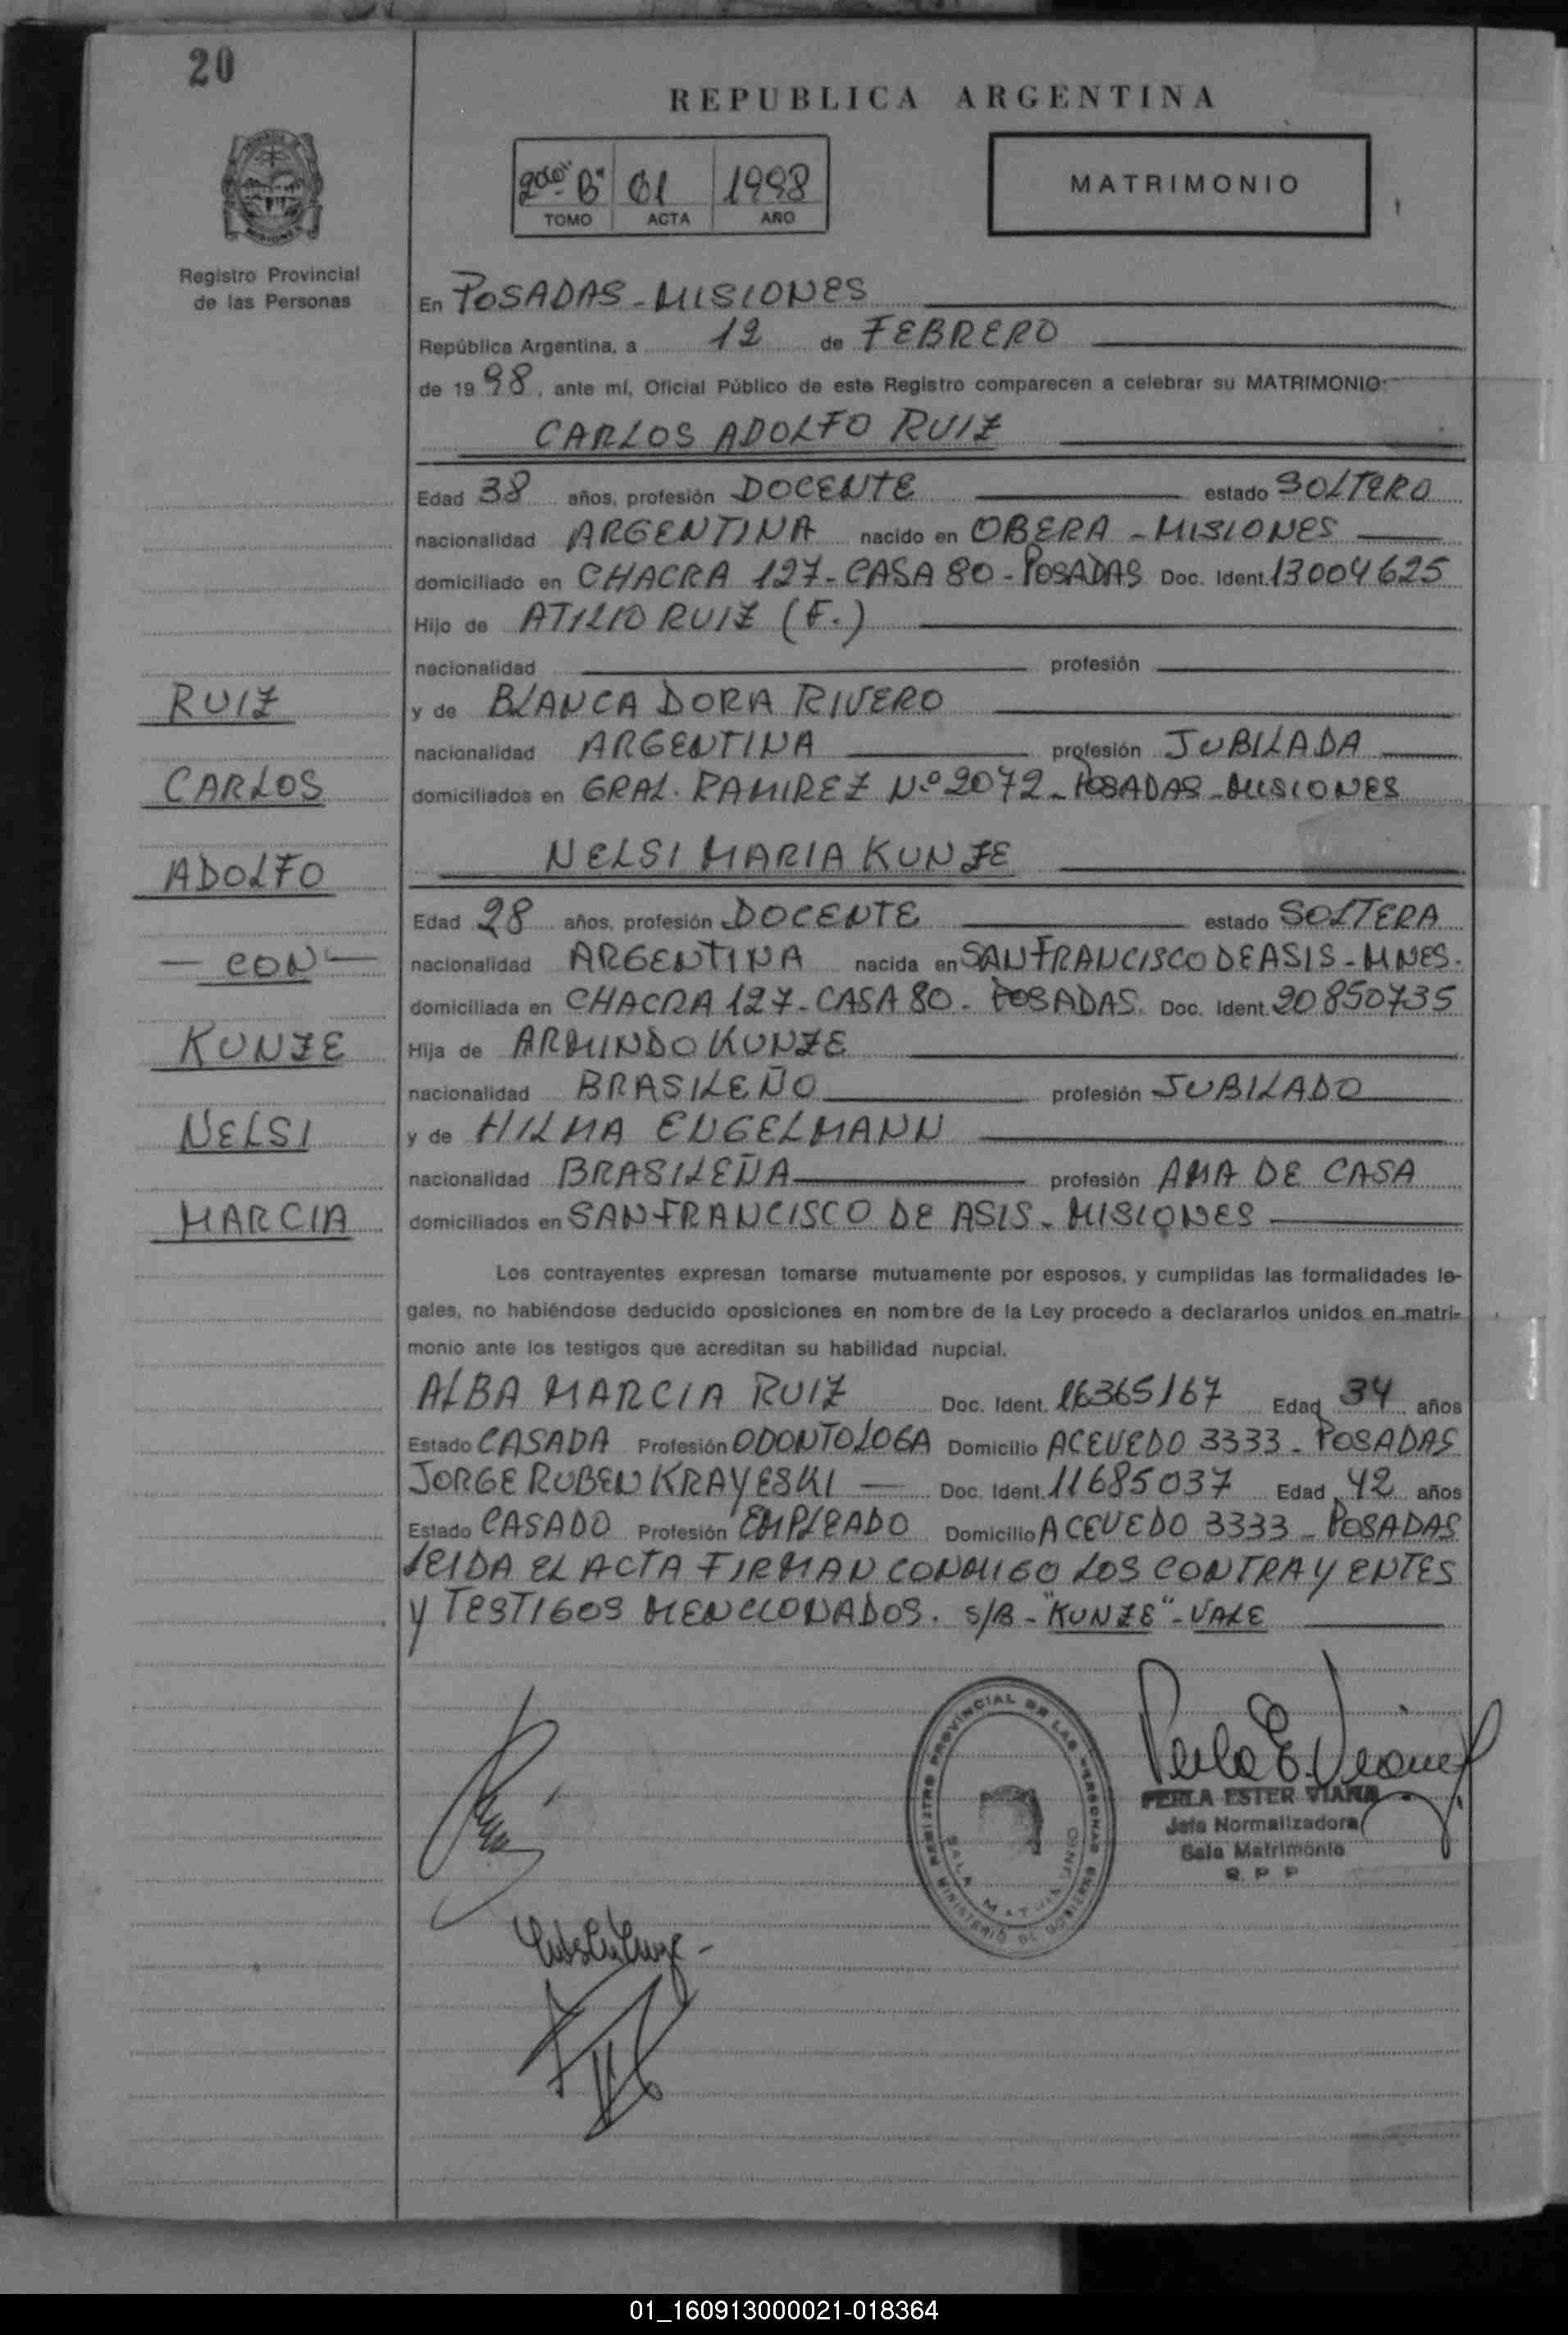 20
REPUBLICA ARGENTINA
2do. "B" 01 1998
TOMO ACTA AÑO
MATRIMONIO
Registro Provincial
de las Personas
En POSADAS - MISIONES
República Argentina, a 12 de FEBRERO
de 1998, ante mí, Oficial Público de este Registro comparecen a celebrar su MATRIMONIO:
CARLOS ADOLFO RUIZ
Edad 38 años, profesión DOCENTE estado SOLTERO
nacionalidad ARGENTINA nacido en OBERA - MISIONES
domiciliado en CHACRA 127 - CASA 80 - POSADAS Doc. Ident. 13004625
Hijo de ATILIO RUIZ (F.)
nacionalidad profesión
y de BLANCA DORA RIVERO
nacionalidad ARGENTINA profesión JUBILADA
domiciliados en GRAL. RAMIREZ Nº 2072 - POSADAS - MISIONES
NELSI MARIA KUNZE
Edad 28 años, profesión DOCENTE estado SOLTERA
nacionalidad ARGENTINA nacida en SAN FRANCISCO DE ASIS - MNES.
domiciliada en CHACRA 127 - CASA 80 - POSADAS. Doc. Ident. 20850735
Hija de ARMINDO KUNZE
nacionalidad BRASILEÑO profesión JUBILADO
y de HILMA ENGELMANN
nacionalidad BRASILEÑA profesión AMA DE CASA
domiciliados en SAN FRANCISCO DE ASIS - MISIONES
RUIZ
CARLOS
ADOLFO
- CON -
KUNZE
NELSI
MARCIA
Los contrayentes expresan tomarse mutuamente por esposos, y cumplidas las formalidades le-
gales, no habiéndose deducido oposiciones en nombre de la Ley procedo a declararlos unidos en matri-
monio ante los testigos que acreditan su habilidad nupcial.
ALBA MARCIA RUIZ Doc. Ident. 16365167 Edad 34 años
Estado CASADA Profesión ODONTOLOGA Domicilio ACEVEDO 3333 - POSADAS
JORGE RUBEN KRAYESKI Doc. Ident. 11685037 Edad 42 años
Estado CASADO Profesión EMPLEADO Domicilio ACEVEDO 3333 - POSADAS
LEIDA EL ACTA FIRMAN CONMIGO LOS CONTRAYENTES
Y TESTIGOS MENCIONADOS. S/B - "KUNZE" - VALE
REGISTRO PROVINCIAL DE LAS PERSONAS
MINISTERIO DE GOBIERNO
SALA MATRIMONIO
PERLA ESTER VIANA
Jefa Normalizadora
Sala Matrimonio
R. P. P
01_160913000021-018364